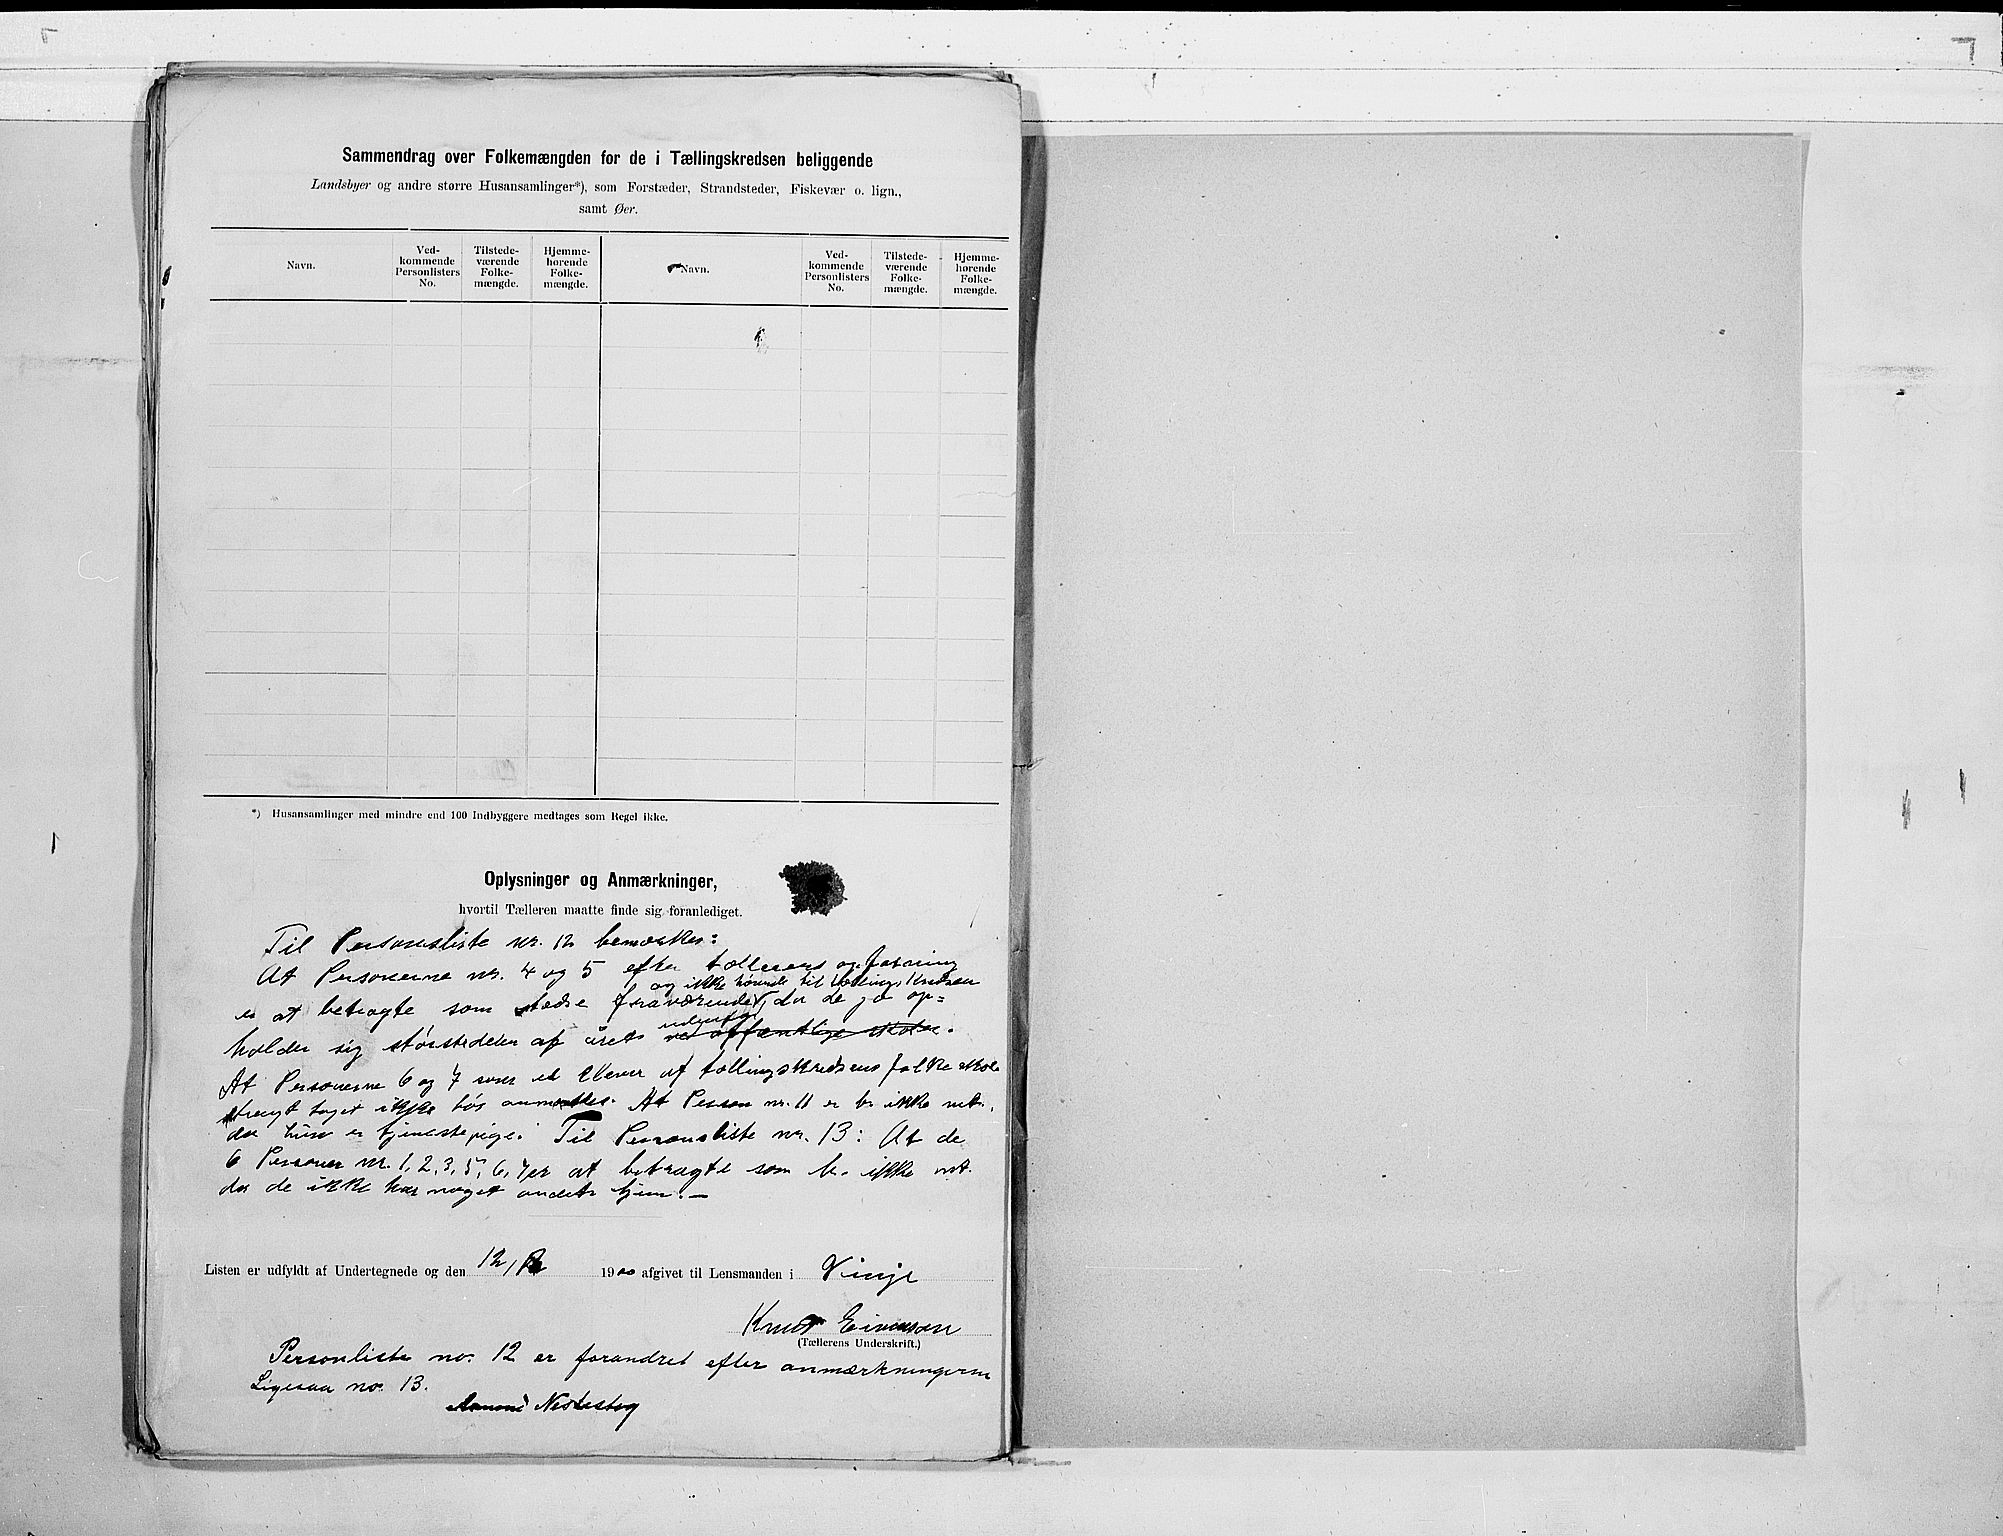 Sammendrag over Folkemængden for de i Tællingskredsen beliggende
Landsbyer og andre større Husansamlinger*), som Forstæder, Strandsteder, Fiskevær o. lign.,
samt Øer.
Navn. Ved-kommende Personlisters No. Tilstede-værende Folke-mængde. Hjemme-hørende Folke-mængde. Navn. Ved-kommende Personlisters No. Tilstede-værende Folke-mængde. Hjemme-hørende Folke-mængde.
*) Husansamlinger med mindre end 100 Indbyggere medtages som Regel ikke.
Oplysninger og Anmærkninger,
hvortil Tælleren maatte finde sig foranlediget.
Til Personsliste nr. 12 bemærkes:
At Personerne nr. 4 og 5 efter tællerens opfatning
og ikke hørende til tællings Kredsen
er at betragte som fraværende, da de jo op=
holder sig størstedelen af året udenfor ved offentlige skoler.
At Personerne 6 og 7 som elever af tællingskredsens folkeskole
strengt taget ikke bør anmerkes. At Person nr. 11 er b. ikke mt.
da hun er tjenestepige. Til Personsliste nr. 13: At de
6 Personer nr. 1, 2, 3, 5, 6, 7 er at betragte som b. ikke mt.
da de ikke har noget andet hjem. —
Listen er udfyldt af Undertegnede og den 12/ 1900 afgivet til Lensmanden i Vinje
Knut Eivindson
(Tællerens Underskrift.)
Personliste no. 12 er forandret efter anmærkningerne
Ligesaa no. 13.
Aamund Nordestog